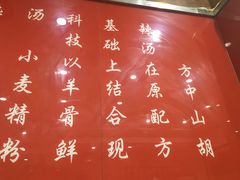 方中山胡
辣汤在原配方
基础上结合现
科技以羊骨鲜
汤
小麦精粉